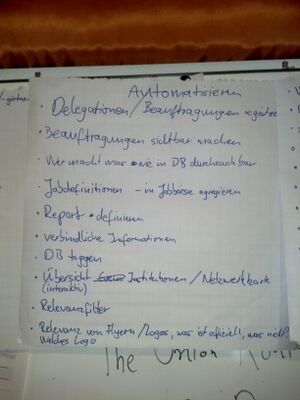 Automatisieren
· Delegationen / Beauftragungen
· Beauftragungen sichtbar machen
· Wer macht was wie in DB durchsuchbar
· Jobdefinitionen – in Jobbörse agregieren
· Report definieren
· verbindliche Informationen
· DB taggen
· Übersicht Institutionen / Netzwerkkarte
(interaktiv)
· Relevanzfilter
· Relevanz von Flyern / Logos, was ist offiziell, was nicht?
Welches Logo
The Union